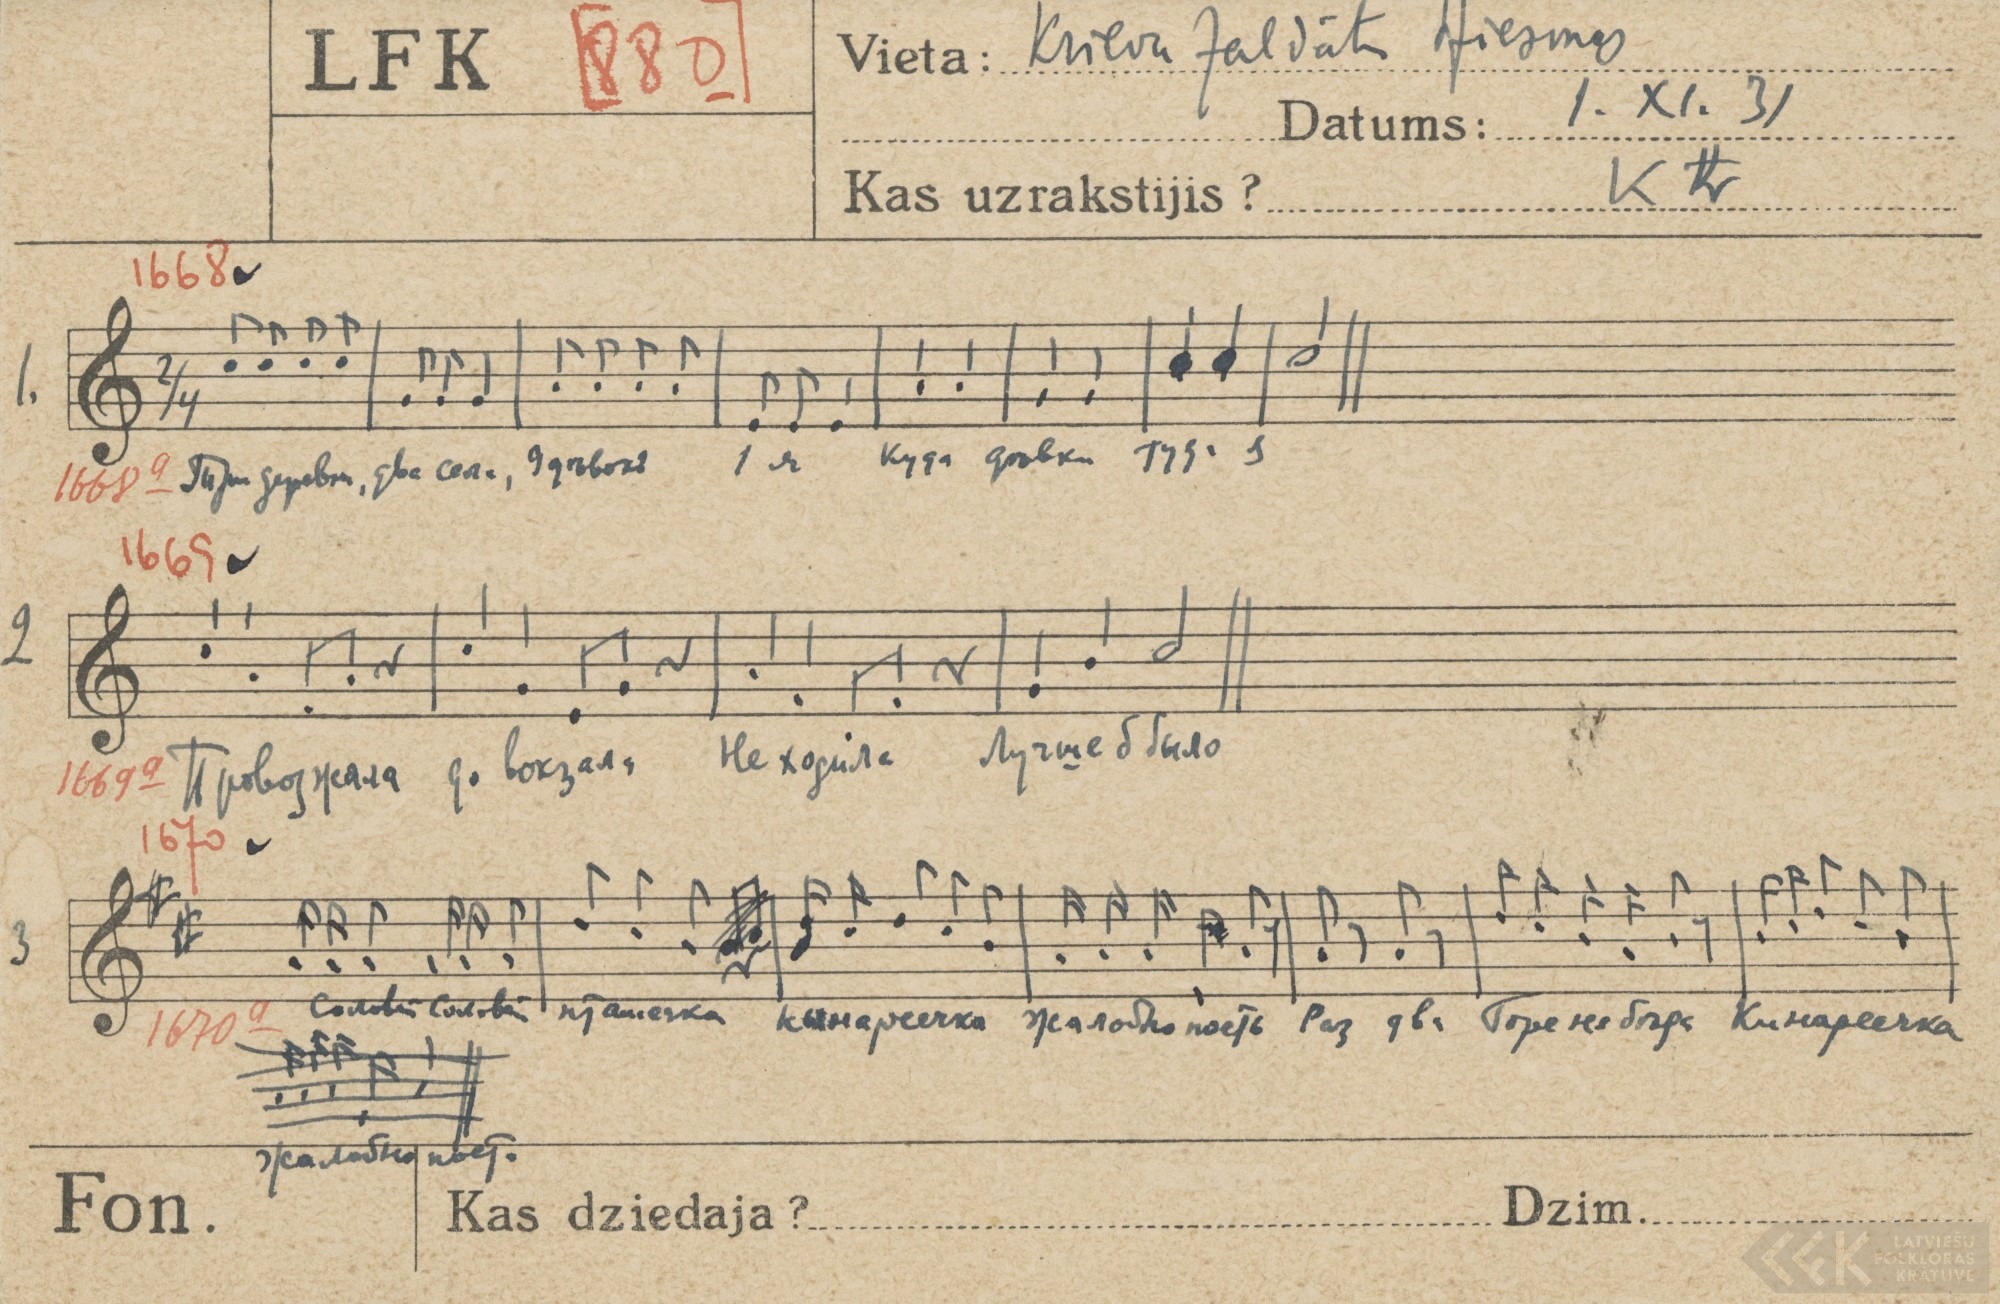 LFK [880]
Vieta: Krievu zaldātu dziesmas
Datums: 1. XI. 31
Kas uzrakstijis?
1668
1. 2/4
1668a Три деревни, два села, 8 дѣвокъ 1 я куда дѣвки туда я
1669
2
1669a Провожала до вокзала Не ходила Лучше б было
1670
3
1670a Соловей соловей пташечка кынареечка жалобно поетъ Раз два Горе не бѣда Кинареечка
жалобно поетъ
Fon. Kas dziedaja? Dzim.
LATVIEŠU
FOLKLORAS
KRĀTUVE